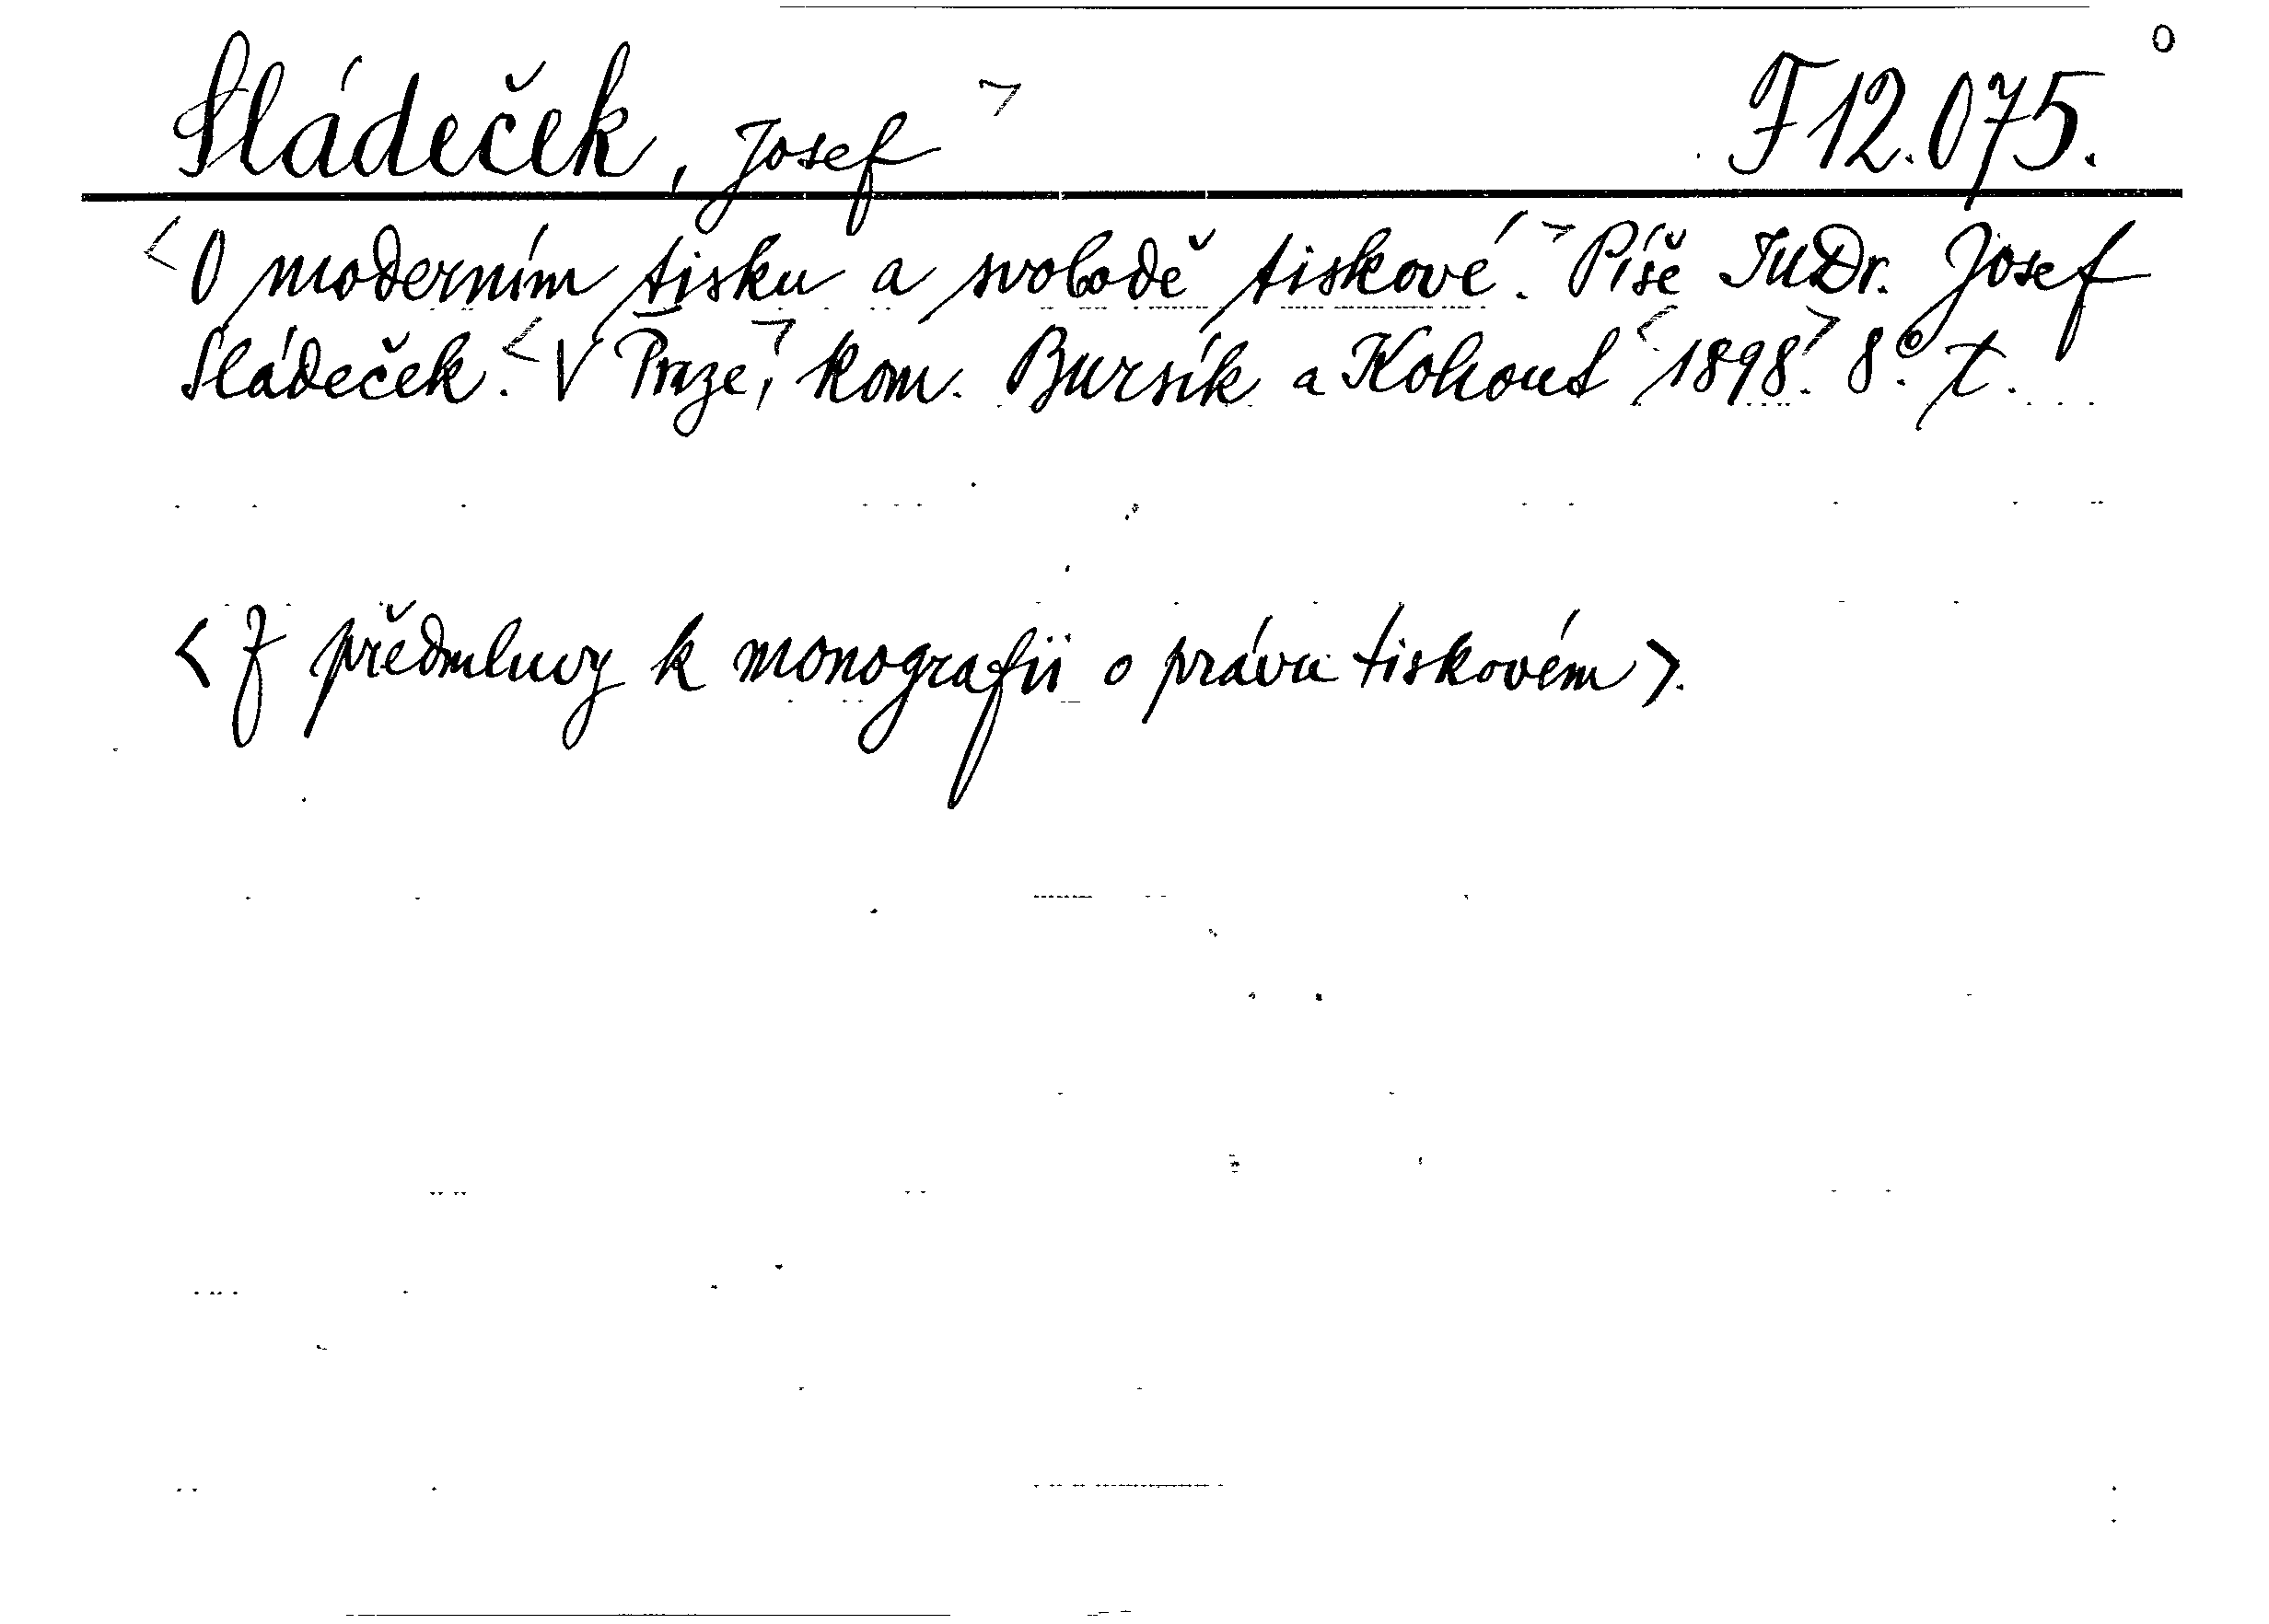 Sládeček, Josef ¬ F 12.075. o
<O moderním tisku a svobodě tiskové.¬ Píše JuDr. Josef
Sládeček. <V Praze,¬ kom. Bursík a Kohout <1898.¬ 8°. t.
<Z předmluvy k monografii o právu tiskovém>.